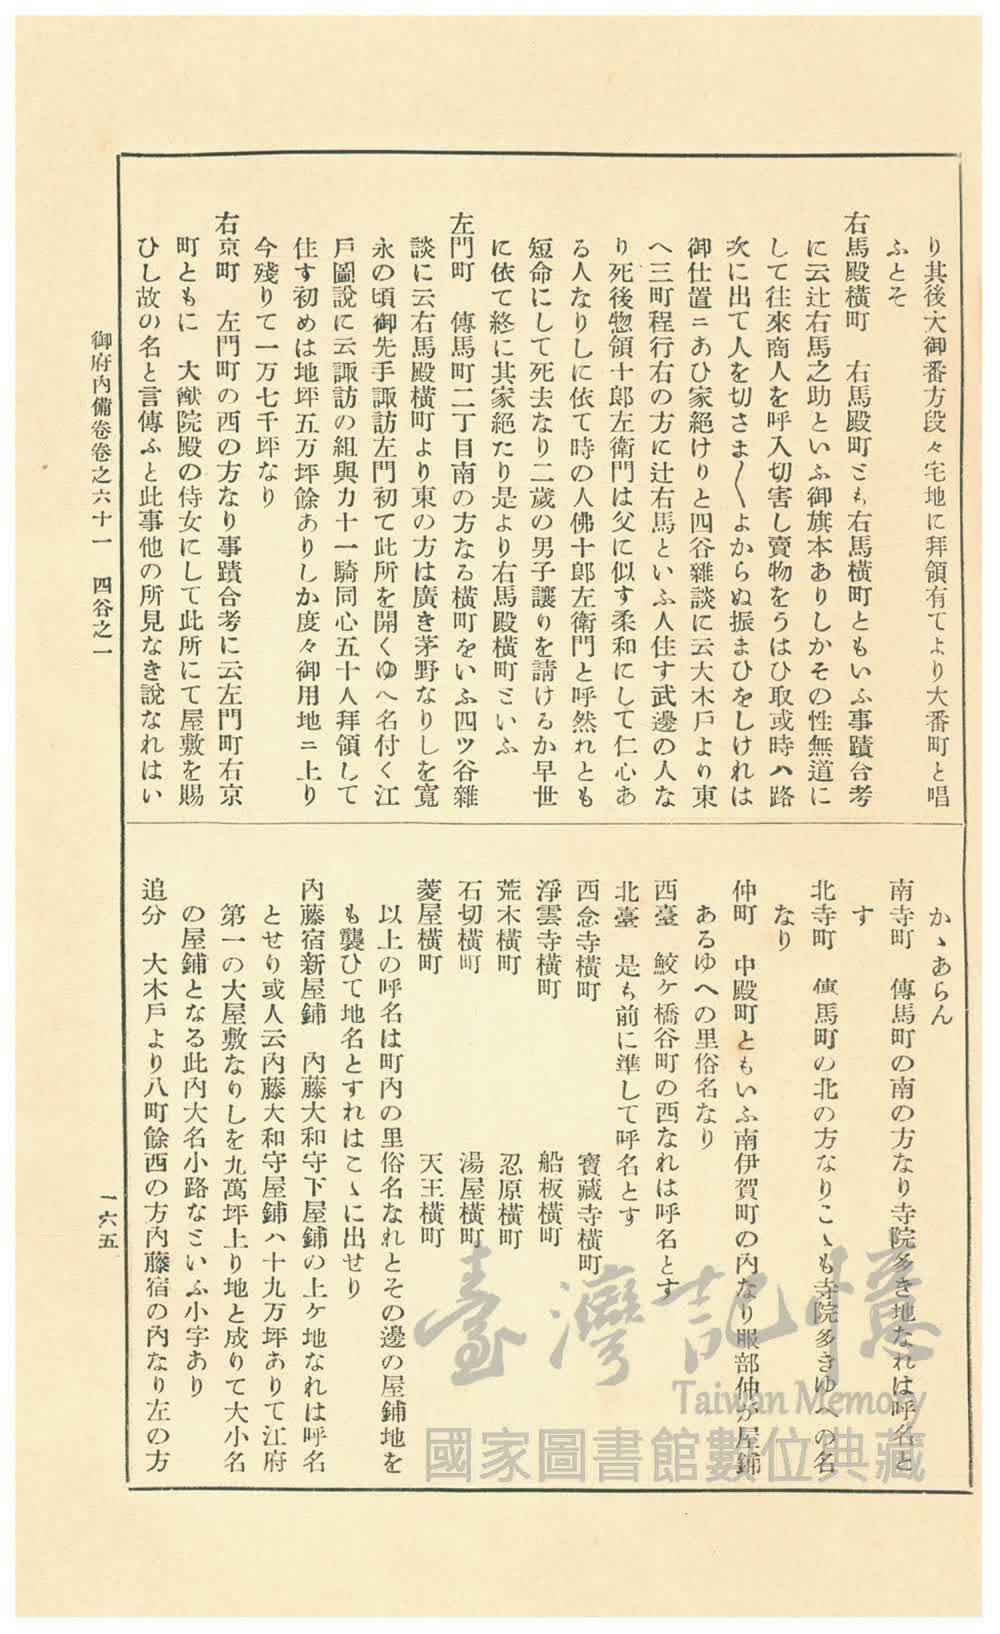 り其後大御番方段々宅地に拜領有てより大番町と唱
ふとそ
右馬殿橫町　右馬殿町とも右馬橫町ともいふ事蹟合考
に云辻右馬之助といふ御旗本ありしかその性無道に
して往來商人を呼入切害し賣物をうはひ取或時ハ路
次に出て人を切さま〳〵よからぬ振まひをしけれは
御仕置ニあひ家絕けりと四谷雜談に云大木戶より東
へ三町程行右の方に辻右馬といふ人住す武邊の人な
り死後惣領十郎左衞門は父に似す柔和にして仁心あ
る人なりしに依て時の人佛十郎左衞門と呼然れとも
短命にして死去なり二歲の男子讓りを請けるか早世
に依て終に其家絕たり是より右馬殿橫町といふ
左門町　傳馬町二丁目南の方なる橫町をいふ四ッ谷雜
談に云右馬殿橫町より東の方は廣き茅野なりしを寬
永の頃御先手諏訪左門初て此所を開くゆへ名付く江
戶圖說に云諏訪の組與力十一騎同心五十人拜領して
住す初めは地坪五万坪餘ありしか度々御用地ニ上り
今殘りて一万七千坪なり
右京町　左門町の西の方なり事蹟合考に云左門町右京
町ともに　大猷院殿の侍女にして此所にて屋敷を賜
ひし故の名と言傳ふと此事他の所見なき說なれはい
かゝあらん
南寺町　傳馬町の南の方なり寺院多き地なれは呼名と
す
北寺町　傳馬町の北の方なりこゝも寺院多きゆへの名
なり
仲町　中殿町ともいふ南伊賀町の內なり服部仲か屋鋪
あるゆへの里俗名なり
西臺　鮫ヶ橋谷町の西なれは呼名とす
北臺　是も前に準して呼名とす
西念寺橫町　寶藏寺橫町
淨雲寺橫町　船板橫町
荒木橫町　忍原橫町
石切橫町　湯屋橫町
菱屋橫町　天王橫町
以上の呼名は町內の里俗名なれとその邊の屋鋪地を
も襲ひて地名とすれはこゝに出せり
內藤宿新屋鋪　內藤大和守下屋鋪の上ケ地なれは呼名
とせり或人云內藤大和守屋鋪ハ十九万坪ありて江府
第一の大屋敷なりしを九萬坪上り地と成りて大小名
の屋鋪となる此內大名小路なといふ小字あり
追分　大木戶より八町餘西の方內藤宿の內なり左の方
御府內備卷卷之六十一　四谷之一
一六五
臺灣記憶
Taiwan Memory
國家圖書館數位典藏